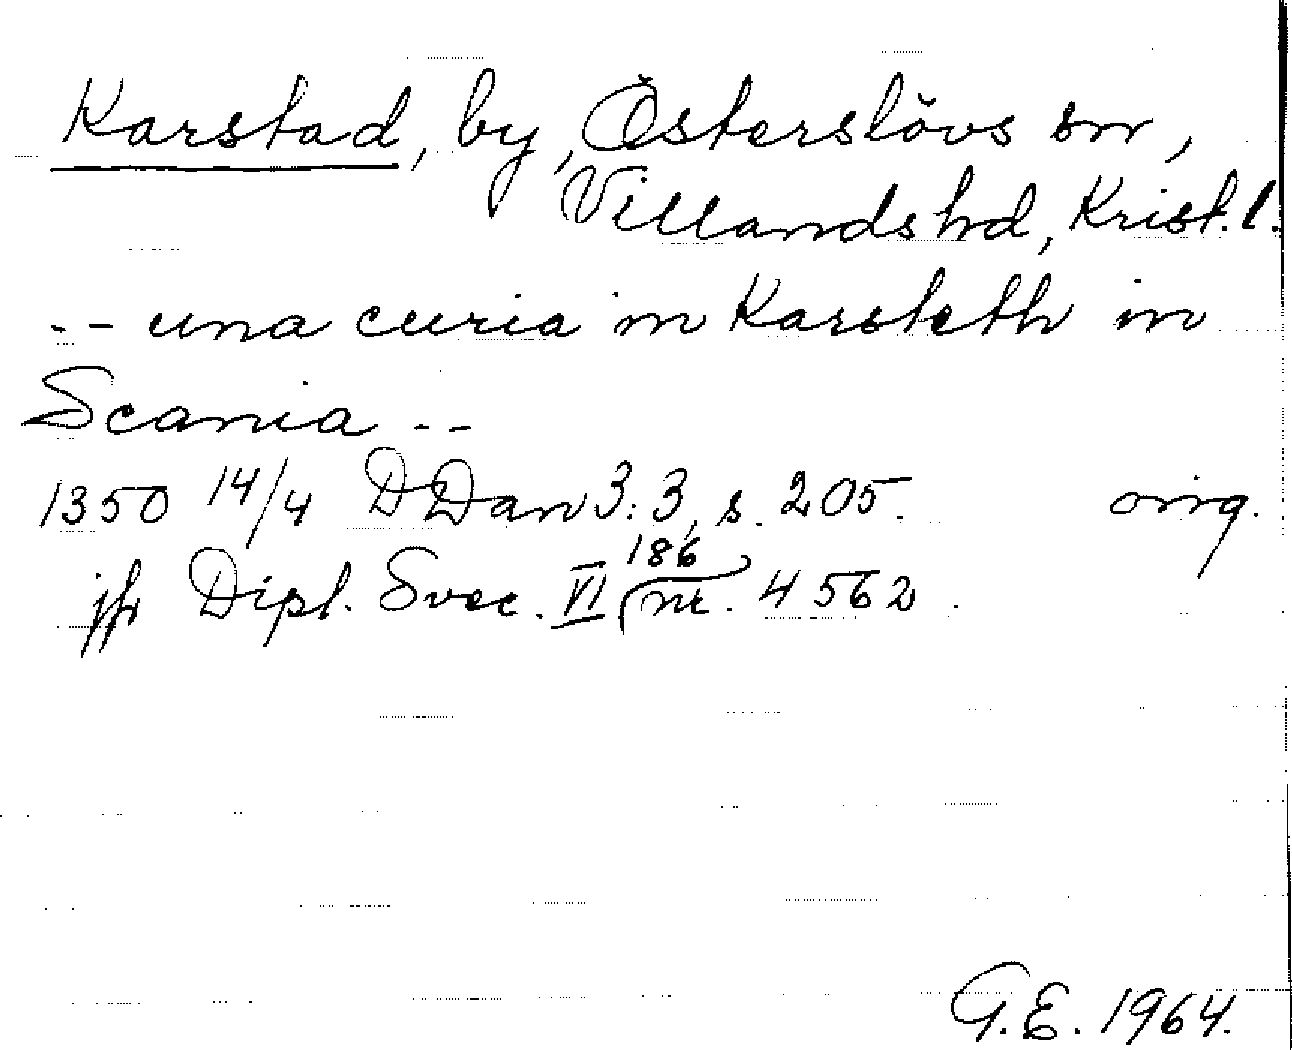 Karstad, by, Österslövs sn,
Villands hd, Krist. l.
-- una curia in Karsteth in
Scania --
1350 14/4 DDan 3:3, s. 205. orig.
jfr Dipl. Svec. VI 186 nr. 4562.
G.E. 1964.